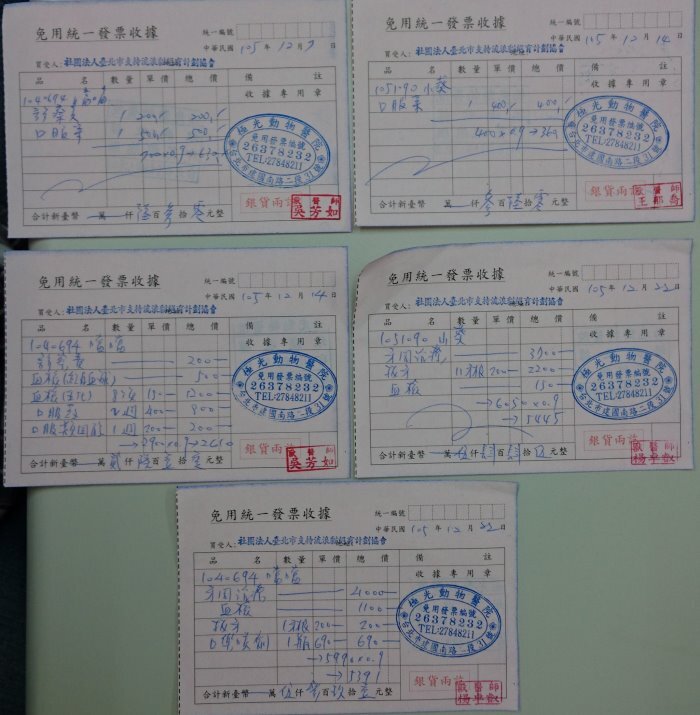 免用統一發票收據
統一編號
中華民國 105 年 12 月 7 日
買受人：社團法人臺北市支持流浪貓絕育計劃協會
品 名 數量 單價 總價 備 註
收據專用章
104-694 噹噹
診察費 1 200 200
口服藥 1 500 500
700×0.9→630
極光動物醫院
免用發票編號
26378232
TEL:27848211
台北市建國南路二段31號
銀貨兩訖
獸醫師
吳芳如
合計新臺幣 萬 仟 陸 百 參 拾 零 元整
免用統一發票收據
統一編號
中華民國 105 年 12 月 14 日
買受人：社團法人臺北市支持流浪貓絕育計劃協會
品 名 數量 單價 總價 備 註
收據專用章
105-1090 小葵
口服藥 1 400 400
400×0.9→360
極光動物醫院
免用發票編號
26378232
TEL:27848211
台北市建國南路二段31號
銀貨兩訖
獸醫師
合計新臺幣 萬 仟 參 百 陸 拾 零 元整
免用統一發票收據
統一編號
中華民國 105 年 12 月 14 日
買受人：社團法人臺北市支持流浪貓絕育計劃協會
品 名 數量 單價 總價 備 註
收據專用章
104-694 噹噹
診察費 200
血檢 500
血檢(生化) 8項 150 1200
口服藥 2週 400 800
200 200
→2900×0.9→2610
極光動物醫院
免用發票編號
26378232
TEL:27848211
台北市建國南路二段31號
銀貨兩訖
獸醫師
吳芳如
合計新臺幣 萬 貳 仟 陸 百 壹 拾 零 元整
免用統一發票收據
統一編號
中華民國 105 年 12 月 22 日
買受人：社團法人臺北市支持流浪貓絕育計劃協會
品 名 數量 單價 總價 備 註
收據專用章
105-1090 小葵
牙周治療 3700
拔牙 11根 200 2200
血檢 150
→6050×0.9
→5445
極光動物醫院
免用發票編號
26378232
TEL:27848211
台北市建國南路二段31號
銀貨兩訖
獸醫師
合計新臺幣 萬 伍 仟 肆 百 肆 拾 伍 元整
免用統一發票收據
統一編號
中華民國 105 年 12 月 22 日
買受人：社團法人臺北市支持流浪貓絕育計劃協會
品 名 數量 單價 總價 備 註
收據專用章
104-694 噹噹
牙周治療 4000
血檢 1100
拔牙 1根 200 200
1瓶 690 690
→5990×0.9
→5391
極光動物醫院
免用發票編號
26378232
TEL:27848211
台北市建國南路二段31號
銀貨兩訖
獸醫師
合計新臺幣 萬 伍 仟 參 百 玖 拾 壹 元整